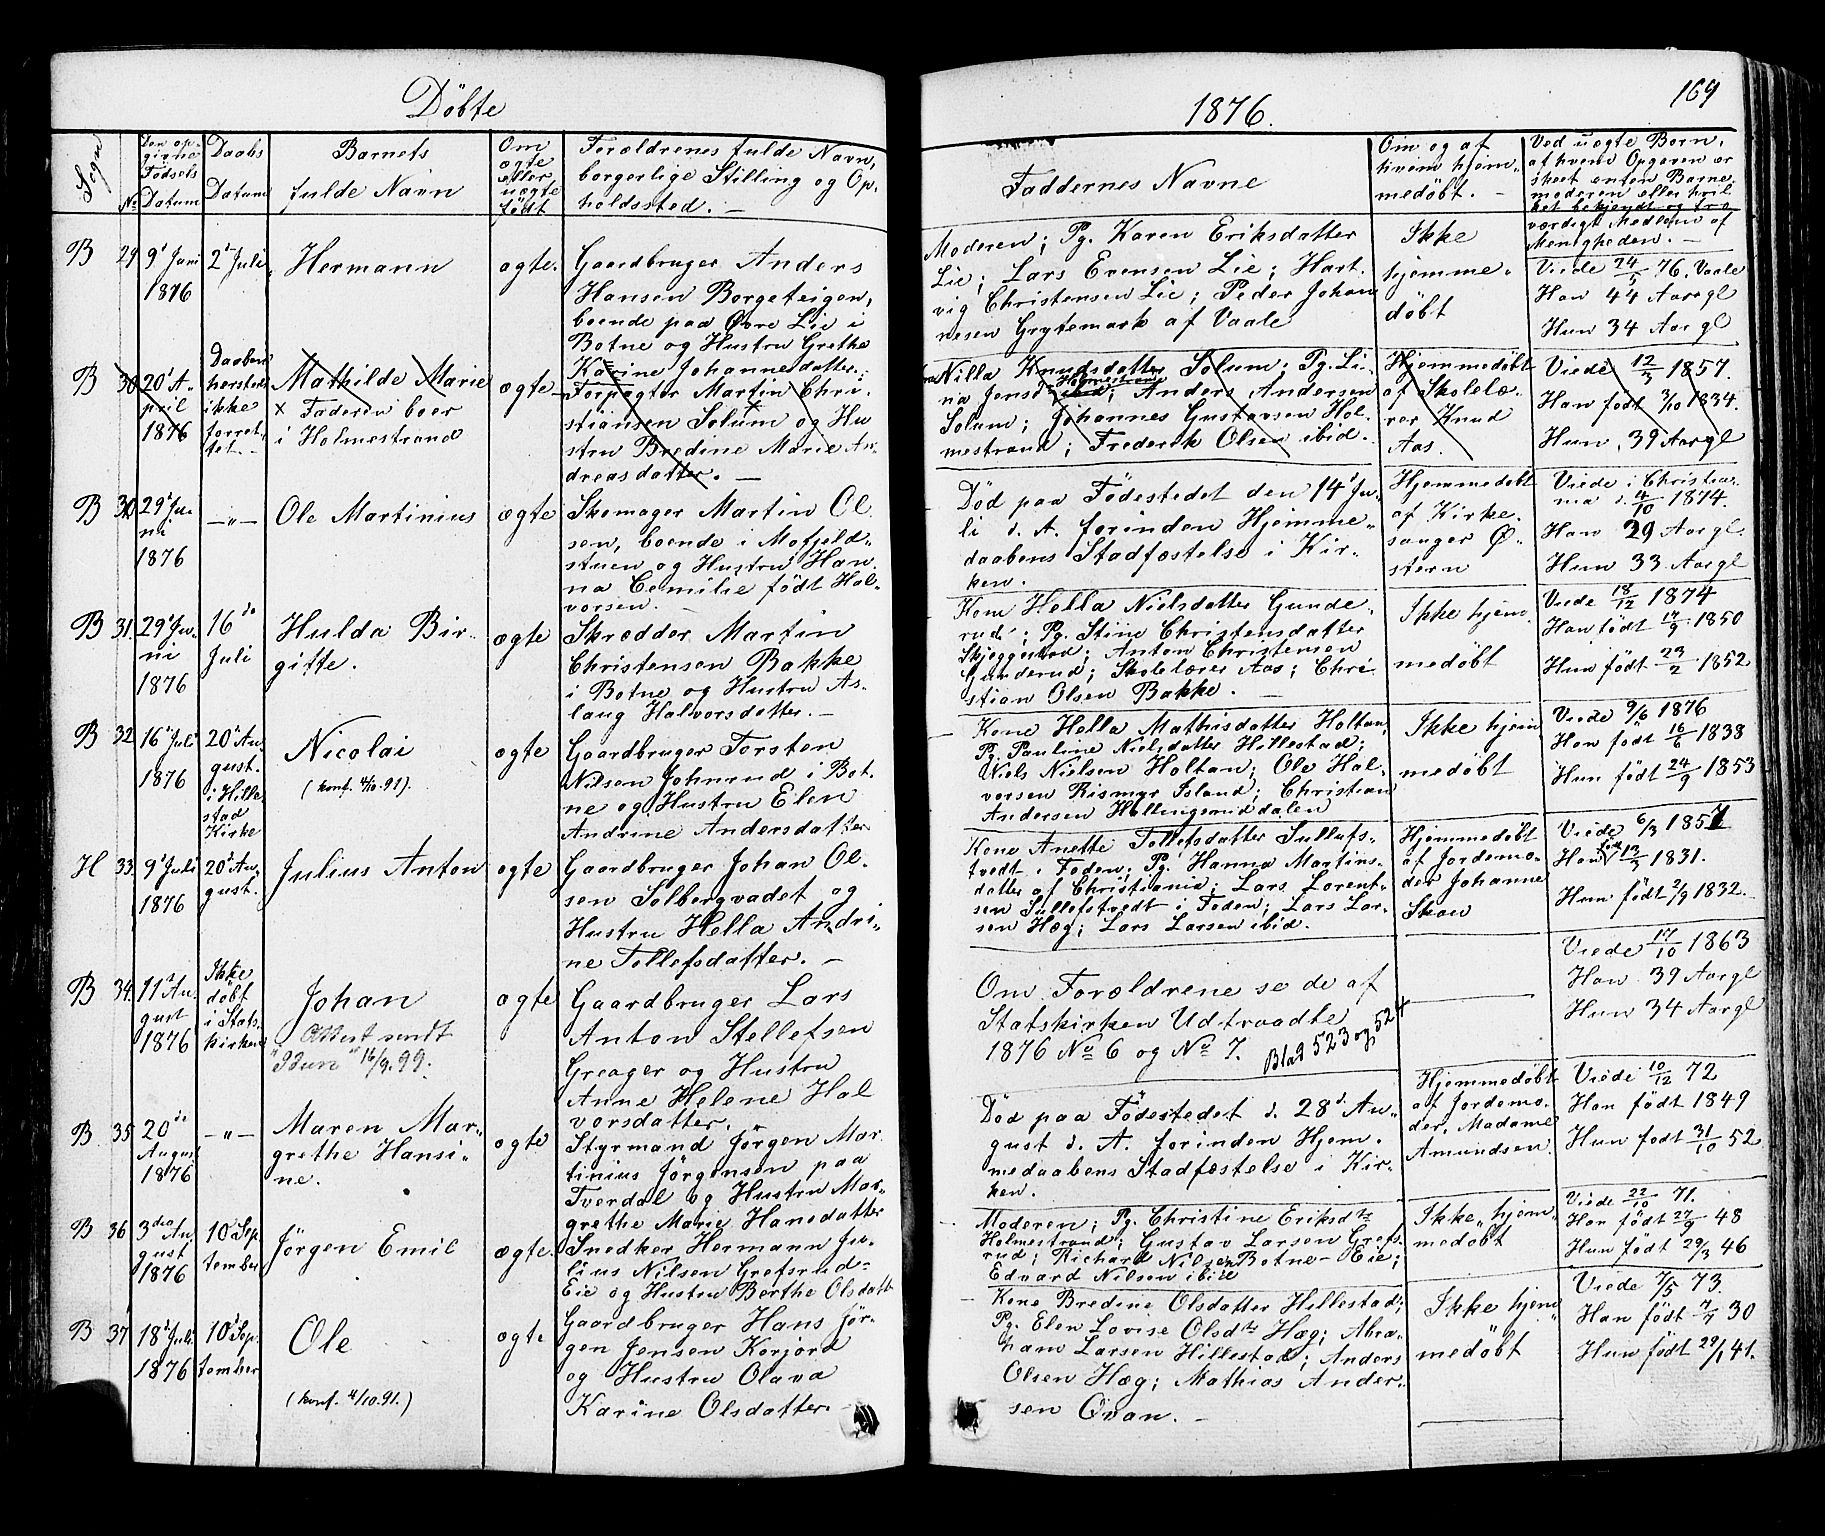 Döbte
1876.
169
Sogn
No
Den op-
givne
Födsels
Datum
Daabs
Datum
Barnets
fulde Navn
Om
ægte
eller
uægte
födt
Forældrenes fulde Navn,
borgerlige Stilling og Op-
holdssted. —
Faddernes Navne
Om og af
hvem hjem-
medöbt. —
Ved uægte Börn,
af hvem Opgaven er
skeet enten Barne-
moderen eller hvil-
ket bekjendt og tro-
værdigt Medlem af
Menigheden. —
B 29 9d Juni
1876
2d Juli
Hermann
ægte.
Gaardbruger Anders
Hansen Borgeteigen,
boende paa Øvre Lie i
Botne og Hustru Grethe
Karine Johannesdatter.
Moderen; Pg. Karen Eriksdatter
Lie; Lars Evensen Lie; Hart-
vig Christensen Lie; Peder Johan
nesen Grytemark af Vaale
Ikke
hjemme-
döbt
Viede 24/5 76. Vaale
Han 44 Aar gl
Hun 34 Aar gl
B 30 20d A-
pril
1876
Daaben
forsteds
ikke
forret-
tet. -
Mathilde Marie
x Faderen boer
i Holmestrand
ægte -
Forpagter Martin Chri-
stiansen Solum og Hu
stru Bredine Marie An-
dreasdatter. —
Nilla Knudsdatter Solum; Pg. Li-
na Jens Holmestrand
ibid; Anders Andersen
Solum; Johannes Gustavsen Hol-
mestrand; Frederik Olsen ibid.
Hjemmedöbt
af Skolelæ-
rer Knud
Aas.
Viede 12/3 1857.
Han födt 3/10 1834.
Hun 39 Aar gl
B 30 29d Ju-
ni
1876
— " —
Ole Martinius
ægte
Skomager Martin Ol
sen, boende i Mofjeld-
stuen og Hustru Han
na Cemilie födt Hal-
vorsen.
Död paa Födestedet den 14d Ju-
li d. A. forinden Hjemme-
daabens Stadfæstelse i Kir-
ken.
Hjemmedöbt
af Kirke-
sanger Ø-
stern
Viede i Christia-
nia d. 4/10 1874.
Han 29 Aar gl.
Hun 33 Aar gl
B 31. 29d Ju-
ni
1876
16de
Juli
Hulda Bir-
gitte.
ægte
Skrædder Martin
Christensen Bakke
i Botne og Hustru As-
laug Halvorsdatter. —
Kone Hella Nielsdatter Gunde-
rud; Pg. Stine Christensdatter
Skjeggestad; Anton Christensen
Gunderud; Skolelærer Aas; Chri-
stian Olsen Bakke. —
Ikke hjem-
medöbt
Viede 18/12 1874
Han födt 17/9 1850
Hun födt 23/2 1852
B 32 16d Juli
1876
20d Au-
gust.
i Hille-
stad
Kirke
Nicolai
(konf. 4/10.91).
ægte
Gaardbruger Torsten
Nilsen Johnsrud i Bot-
ne og Hustru Elen
Andrine Andersdatter
Kone Hella Mathisdatter Holtan,
Pg. Pauline Nielsdatter Hillestad;
Niels Nielsen Holtan; Ole Hal-
vorsen Rismyr Island; Christian
Andersen Hellingsruddalen
Ikke hjem
medöbt
Viede 9/6 1876
Han födt 16/6 1838
Hun födt 24/9 1853
H 33. 9d Juli
1876
20d Au-
gust.
Julius Anton
ægte
Gaardbruger Johan Ol-
sen Solbergvadet og
Hustru Hella Andri-
ne Tollefsdatter. —
Kone Anette Tollefsdatter Sullufs-
tvedt i Foden; Pg. Hanna Martins-
datter af Christiania; Lars Lorent-
sen Sullefstvedt i Foden; Lars Lar-
sen Hæg; Lars Larsen ibid.
Hjemmedöbt
af Jordemo-
der Johanne
Skou
Viede 6/3 1857
Han födt 13/3 1831.
Hun födt 2/9 1832.
B 34. 11d Au-
gust
1876
Ikke
döbt
i Stats-
kirken
Johan
Attest sendt
"Idun" 16/9.99.
ægte
Gaardbruger Lars
Anton Stellefsen
Greager og Hustru
Anne Helene Hal
vorsdatter.
Om Forældrene se de af
Statskirken Udtraadte
1876 No 6 og No 7. Blad 523 og 524
Viede 17/10 1863
Han 39 Aar gl
Hun 34 Aar gl
B 35 20de
August
1876
— " —
Maren Mar-
grethe Hansi-
ne.
ægte
Styrmand Jörgen Mar
tinius Jörgensen paa
Tverdal og Hustru Mar-
grethe Marie Hansdatter
Död paa Födestedet d. 28d Au-
gust d. A. forinden Hjem-
medaabens Stadfæstelse i Kir-
ken.
Hjemmedöbt
af Jordemo-
der, Madame
Amundsen.
Viede 10/12 72
Han födt 1849
Hun födt 31/10 52
B 36 3die Au
gust
1876
10d Sep
tember
Jörgen Emil
ægte.
Snedker Hermann Ju-
lius Nilsen Grefsrud-
Eie og Hustru Berthe Olsdatt
Moderen; Pg. Christine Eriksdtr
Holmestrand; Gustav Larsen Grefs-
rud; Richard Nilsen Botne-Eie;
Edvard Nilsen ibid
Ikke hjem-
medöbt
Viede 22/10 71.
Han födt 27/9 48
Hun födt 29/3 46
B 37 18d Juli
1876
10d Sep-
tember
Ole
(konf. 4/10.91.)
ægte
Gaardbruger Hans Jör-
gen Jensen Korjord
og Hustru Olava
Karine Olsdatter.
Kone Bredine Olsdatter Hillestad;
Pg. Elen Lovise Olsdtr Hæg; Abra-
ham Larsen Hillestad; Anders
Olsen Hæg; Mathias Ander-
sen Qvan. —
Ikke hjem
medöbt
Viede 7/5 73.
Han födt 7/7 30
Hun födt 29/1 41.